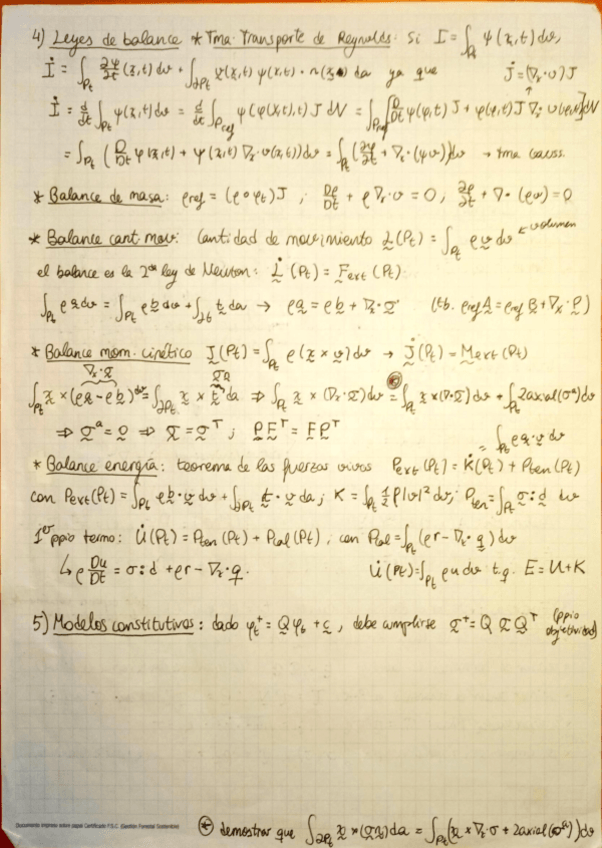 4) Leyes de balance * Tma. Transporte de Reynolds: Si I = ∫_Pt ψ(x,t) dv,
İ = ∫_Pt ∂ψ/∂t (x,t) dv + ∫_∂Pt v(x,t) ψ(x,t) · n(x) da ya que J̇ = (∇x·v) J
İ = d/dt ∫_Pt ψ(x,t) dv = d/dt ∫_Pref ψ(φ(x,t),t) J dV = ∫_Pref [D/Dt ψ(φ,t) J + ψ(φ,t) J ∇x·v(φ,t)] dV
= ∫_Pt (D/Dt ψ(x,t) + ψ(x,t) ∇x·v(x,t)) dv = ∫_Pt (∂ψ/∂t + ∇x·(ψv)) dv → tma Gauss.
* Balance de masa: ρref = (ρ∘φt) J ; Dρ/Dt + ρ∇x·v = 0, ∂ρ/∂t + ∇·(ρv) = 0
* Balance cant mov: Cantidad de movimiento L(Pt) = ∫_Pt ρ v dv ← volumen
el balance es la 2ª ley de Newton: L̇(Pt) = Fext(Pt)
∫_Pt ρ a dv = ∫_Pt ρ b dv + ∫_∂Pt t da → ρa = ρb + ∇x·σ (tb. ρref A = ρref B + ∇x·P)
* Balance mom. cinético J(Pt) = ∫_Pt ρ(x × v) dv → J̇(Pt) = Mext(Pt)
∇x·σ σn
∫_Pt x × (ρa − ρb) dv = ∫_∂Pt x × t da ⇒ ∫_Pt x × (∇x·σ) dv =⊛ ∫_Pt x × (∇·σ) dv + ∫_Pt 2axial(σᵃ) dv
⇒ σᵃ = 0 ⇒ σ = σᵀ ; PFᵀ = FPᵀ
= ∫_Pt ρa·v dv
* Balance energía: teorema de las fuerzas vivas Pext(Pt) = K̇(Pt) + Pten(Pt)
con Pext(Pt) = ∫_Pt ρb·v dv + ∫_∂Pt t·v da ; K = ∫_Pt 1/2 ρ|v|² dv ; Pten = ∫_Pt σ:d dv
1er ppio termo: U̇(Pt) = Pten(Pt) + Pcal(Pt), con Pcal = ∫_Pt (ρr − ∇x·q) dv
↳ ρ Du/Dt = σ:d + ρr − ∇x·q. U̇(Pt) = ∫_Pt ρu dv t.q. E = U + K
5) Modelos constitutivos: dado φt⁺ = Q φt + c, debe cumplirse σ⁺ = Q σ Qᵀ (ppio objetividad)
Documento impreso sobre papel Certificado F.S.C. (Gestión Forestal Sostenible)
⊛ demostrar que ∫_∂Pt x × (σn) da = ∫_Pt (x × ∇x·σ + 2axial(σᵃ)) dv